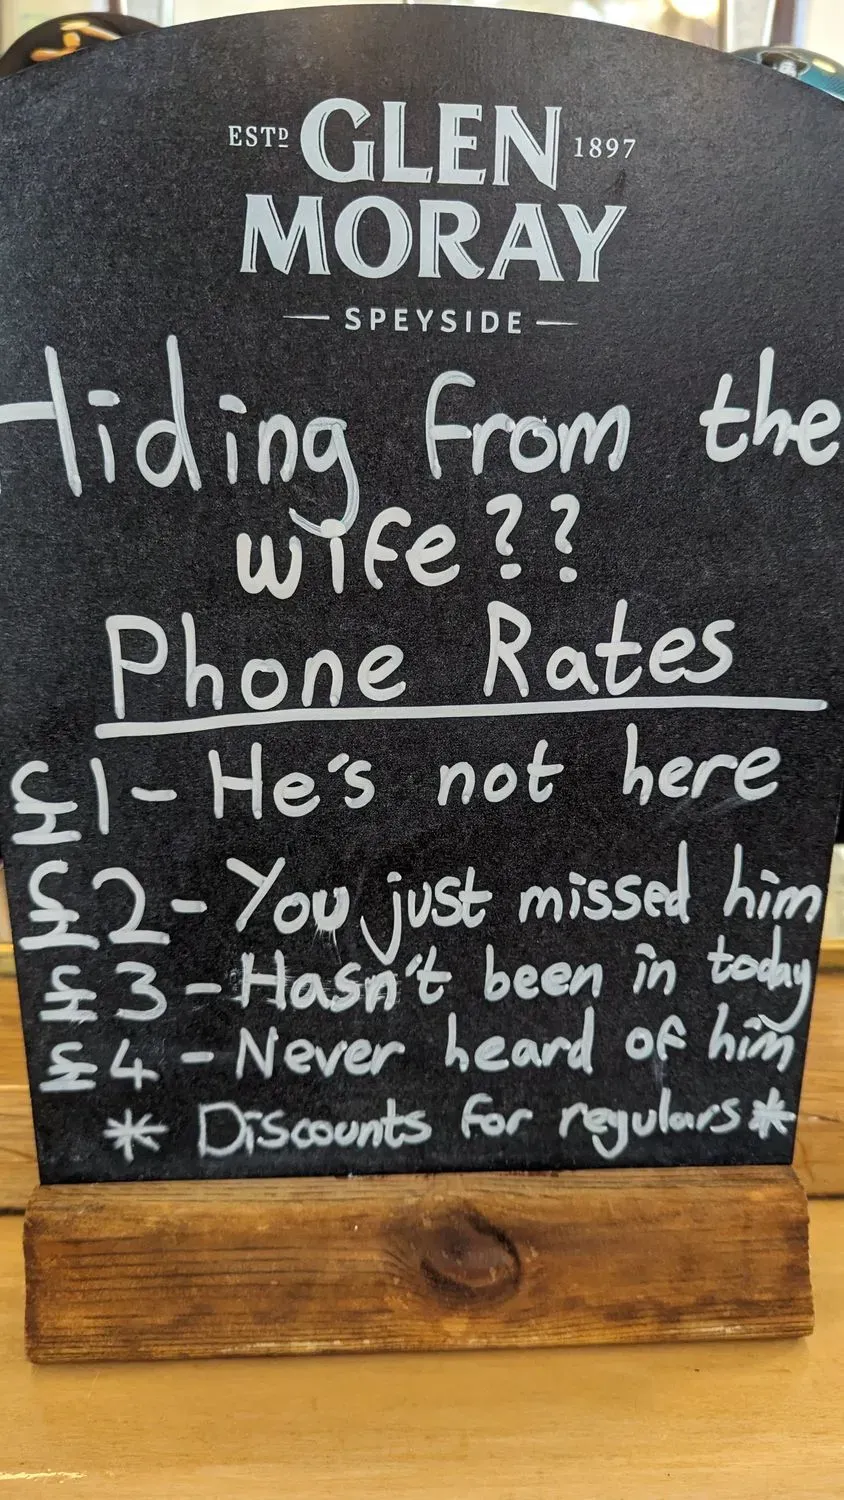 ESTD GLEN 1897
MORAY
— SPEYSIDE —
Hiding from the
wife??
Phone Rates
£1- He's not here
£2- You just missed him
£3 - Hasn't been in today
£4 - Never heard of him
* Discounts for regulars *